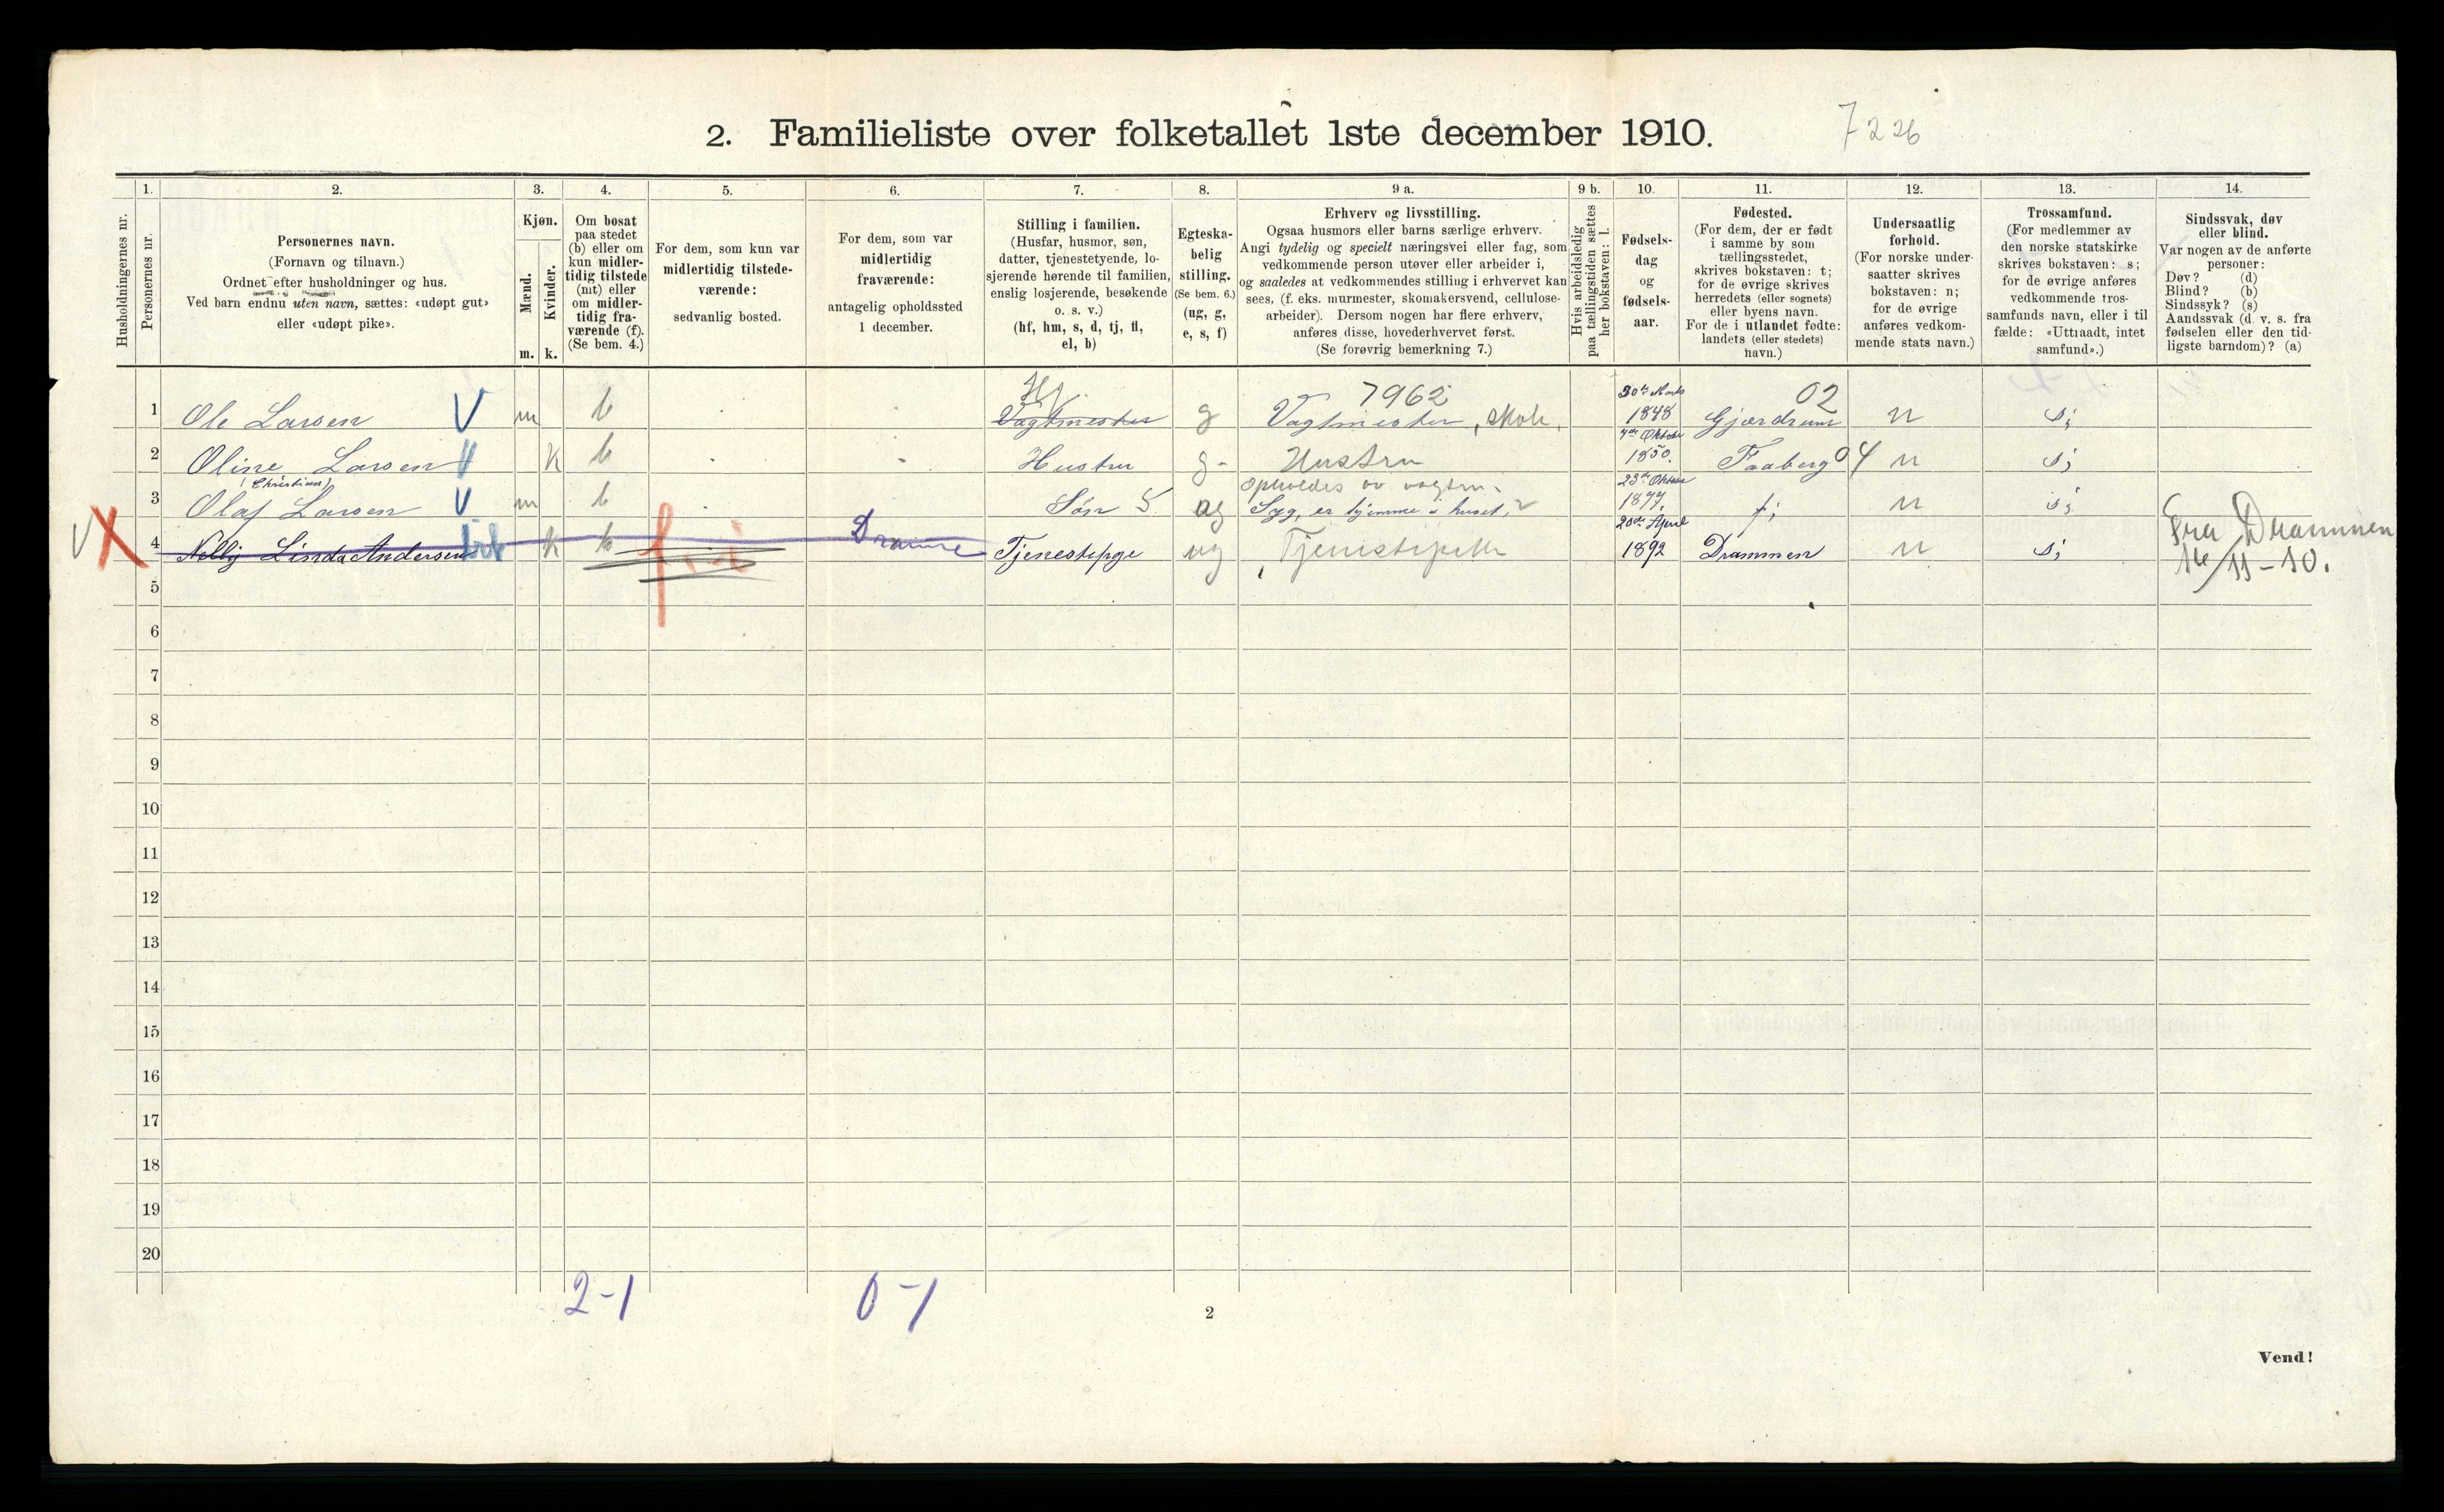 2. Familieliste over folketallet 1ste december 1910.
7226
1.
2.
3.
4.
5.
6.
7.
8.
9 a.
9 b.
10.
11.
12.
13.
14.
Husholdningernes nr.
Personernes nr.
Personernes navn.
(Fornavn og tilnavn.)
Ordnet efter husholdninger og hus.
Ved barn endnu uten navn, sættes: «udøpt gut»
eller «udøpt pike».
Kjøn.
Mænd.
Kvinder.
m.
k.
Om bosat
paa stedet
(b) eller om
kun midler-
tidig tilstede
(mt) eller
om midler-
tidig fra-
værende (f).
(Se bem. 4.)
For dem, som kun var
midlertidig tilstede-
værende:
sedvanlig bosted.
For dem, som var
midlertidig
fraværende:
antagelig opholdssted
1 december.
Stilling i familien.
(Husfar, husmor, søn,
datter, tjenestetyende, lo-
sjerende hørende til familien,
enslig losjerende, besøkende
o. s. v.)
(hf, hm, s, d, tj, fl,
el, b)
Egteska-
belig
stilling.
(Se bem. 6.)
(ug, g,
e, s, f)
Erhverv og livsstilling.
Ogsaa husmors eller barns særlige erhverv.
Angi tydelig og specielt næringsvei eller fag, som
vedkommende person utøver eller arbeider i,
og saaledes at vedkommendes stilling i erhvervet kan
sees, (f. eks. murmester, skomakersvend, cellulose-
arbeider). Dersom nogen har flere erhverv,
anføres disse, hovederhvervet først.
(Se forøvrig bemerkning 7.)
Hvis arbeidsledig
paa tællingstiden sættes
her bokstaven: l.
Fødsels-
dag
og
fødsels-
aar.
Fødested.
(For dem, der er født
i samme by som
tællingsstedet,
skrives bokstaven: t;
for de øvrige skrives
herredets (eller sognets)
eller byens navn.
For de i utlandet fødte:
landets (eller stedets)
navn.)
Undersaatlig
forhold.
(For norske under-
saatter skrives
bokstaven: n;
for de øvrige
anføres vedkom-
mende stats navn.)
Trossamfund.
(For medlemmer av
den norske statskirke
skrives bokstaven: s;
for de øvrige anføres
vedkommende tros-
samfunds navn, eller i til
fælde: «Uttraadt, intet
samfund».)
Sindssvak, døv
eller blind.
Var nogen av de anførte
personer:
Døv? (d)
Blind? (b)
Sindssyk? (s)
Aandssvak (d. v. s. fra
fødselen eller den tid-
ligste barndom)? (a)
1 Ole Larsen V m b Hf Vagtmester g 7962 Vagtmester, skole. 30te Marts 1848 Gjærdrum 02 n s;
2 Oline Larsen V k b Hustru g Hustru 4de Oktober 1850. Faaberg 04 n s;
(Christian)
3 Olaf Larsen V m b Søn S ug Syg, er hjemme i huset, 23de Oktober 1877. t; n s;
V X 4 Nelly Linda Andersen k b Tjenestepge ug Tjenestepike 20de April 1892 Drammen n s; Fra Drammen
16/11-10.
5
6
7
8
9
10
11
12
13
14
15
16
17
18
19
20
2-1
0-1
2
Vend!